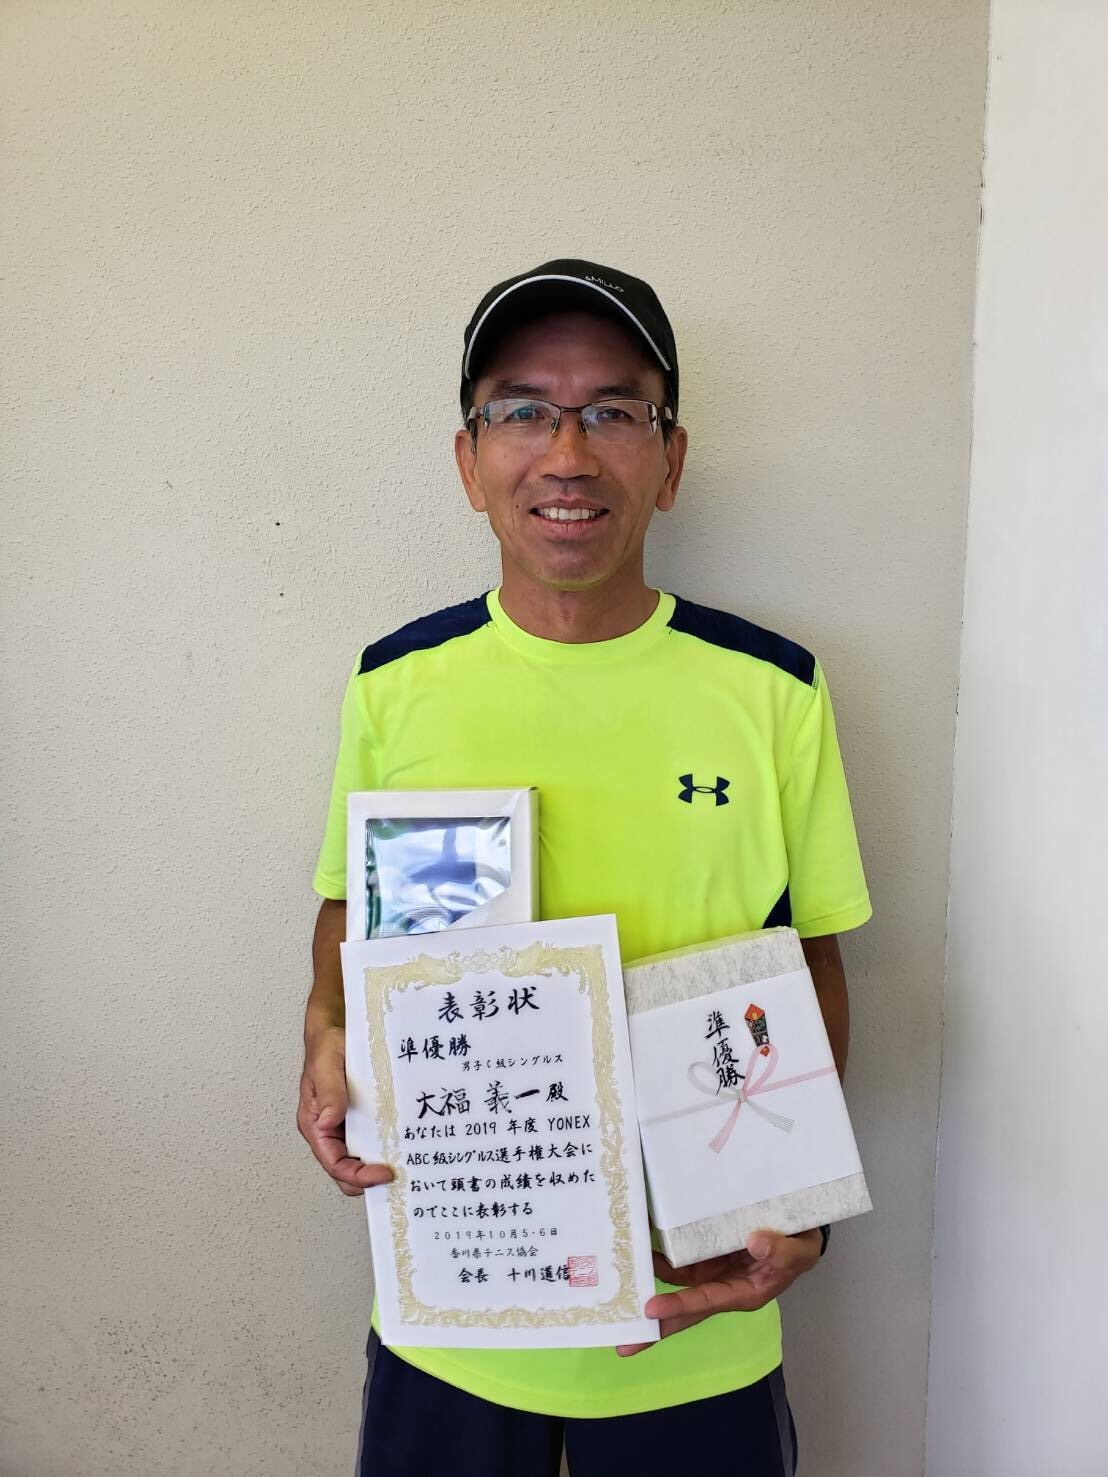 AMILLO
表彰状
準優勝
男子C級シングルス
大福 義一殿
あなたは2019年度YONEX
ABC級シングルス選手権大会に
おいて頭書の成績を収めた
のでここに表彰する
2019年10月5・6日
香川県テニス協会
会長 十川道信
準優勝